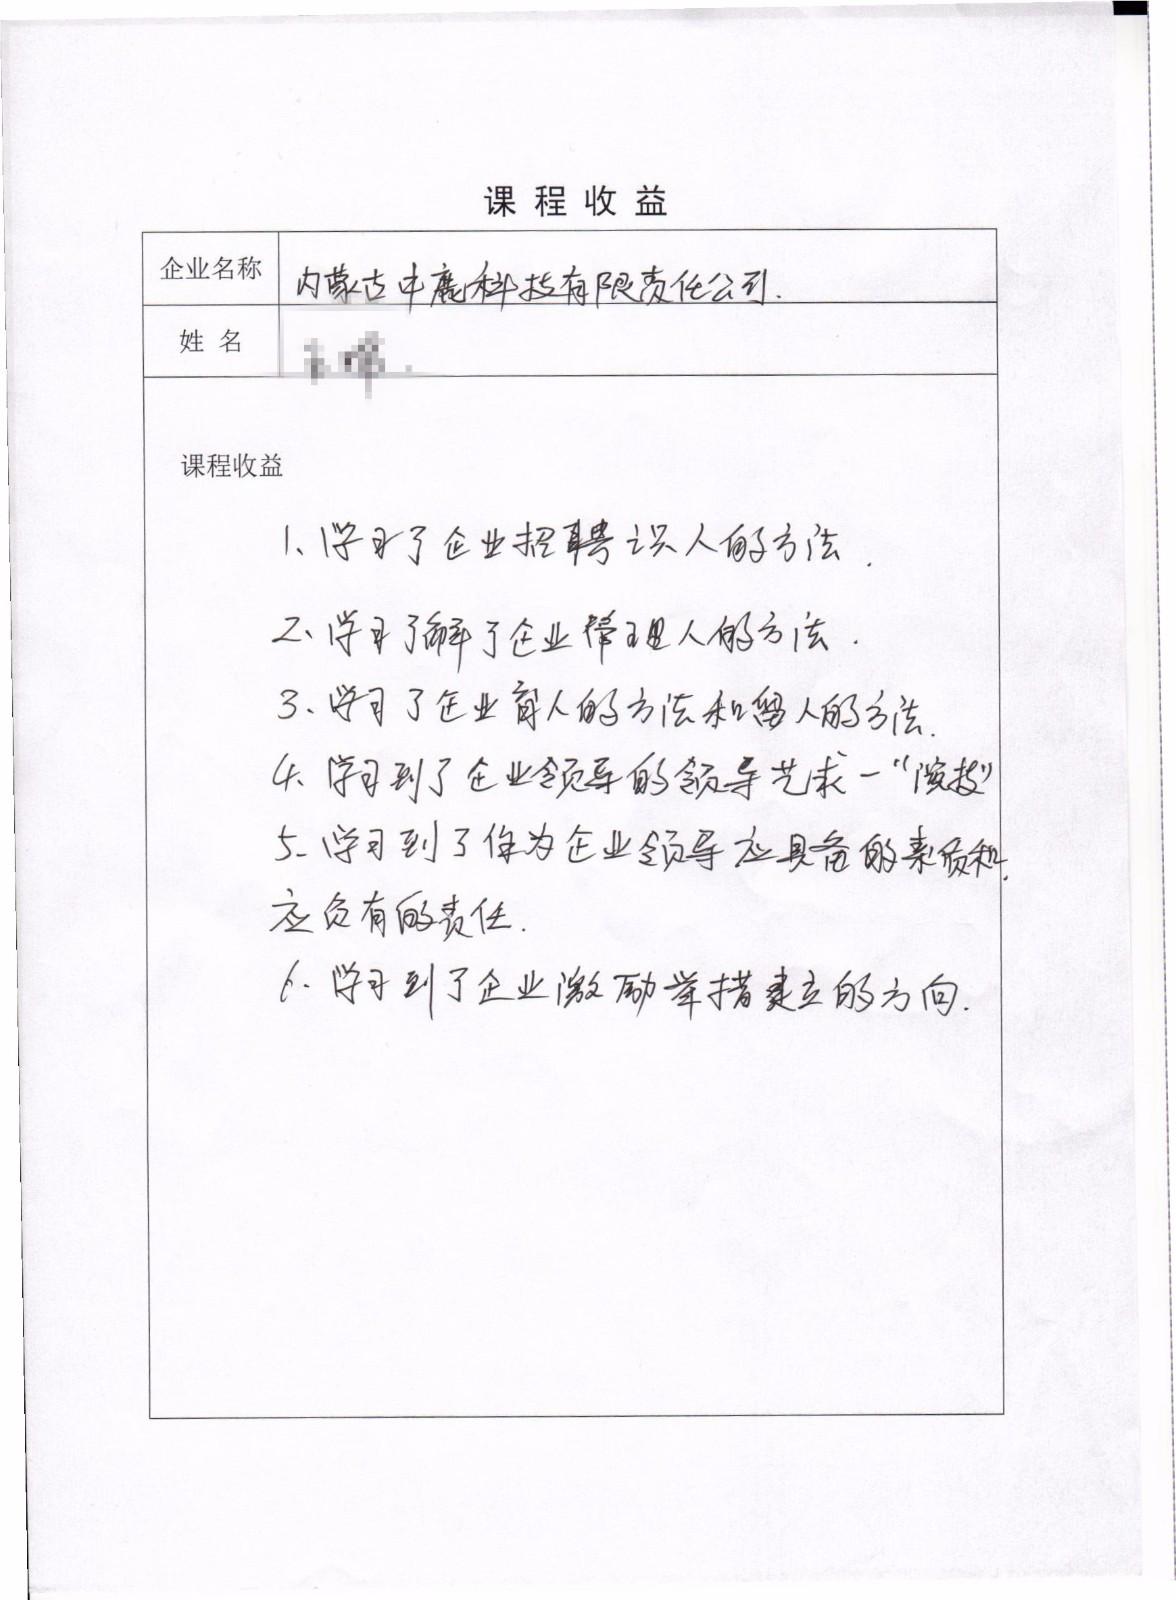 课程收益
企业名称 内蒙古中鹿科技有限责任公司.
姓名
课程收益
1、学习了企业招聘识人的方法.
2、学习了解了企业管理人的方法.
3、学习了企业育人的方法和留人的方法.
4. 学习到了企业领导的领导艺术一“演技”
5. 学习到了作为企业领导应具备的素质和
应负有的责任.
6. 学习到了企业激励举措建立的方向.